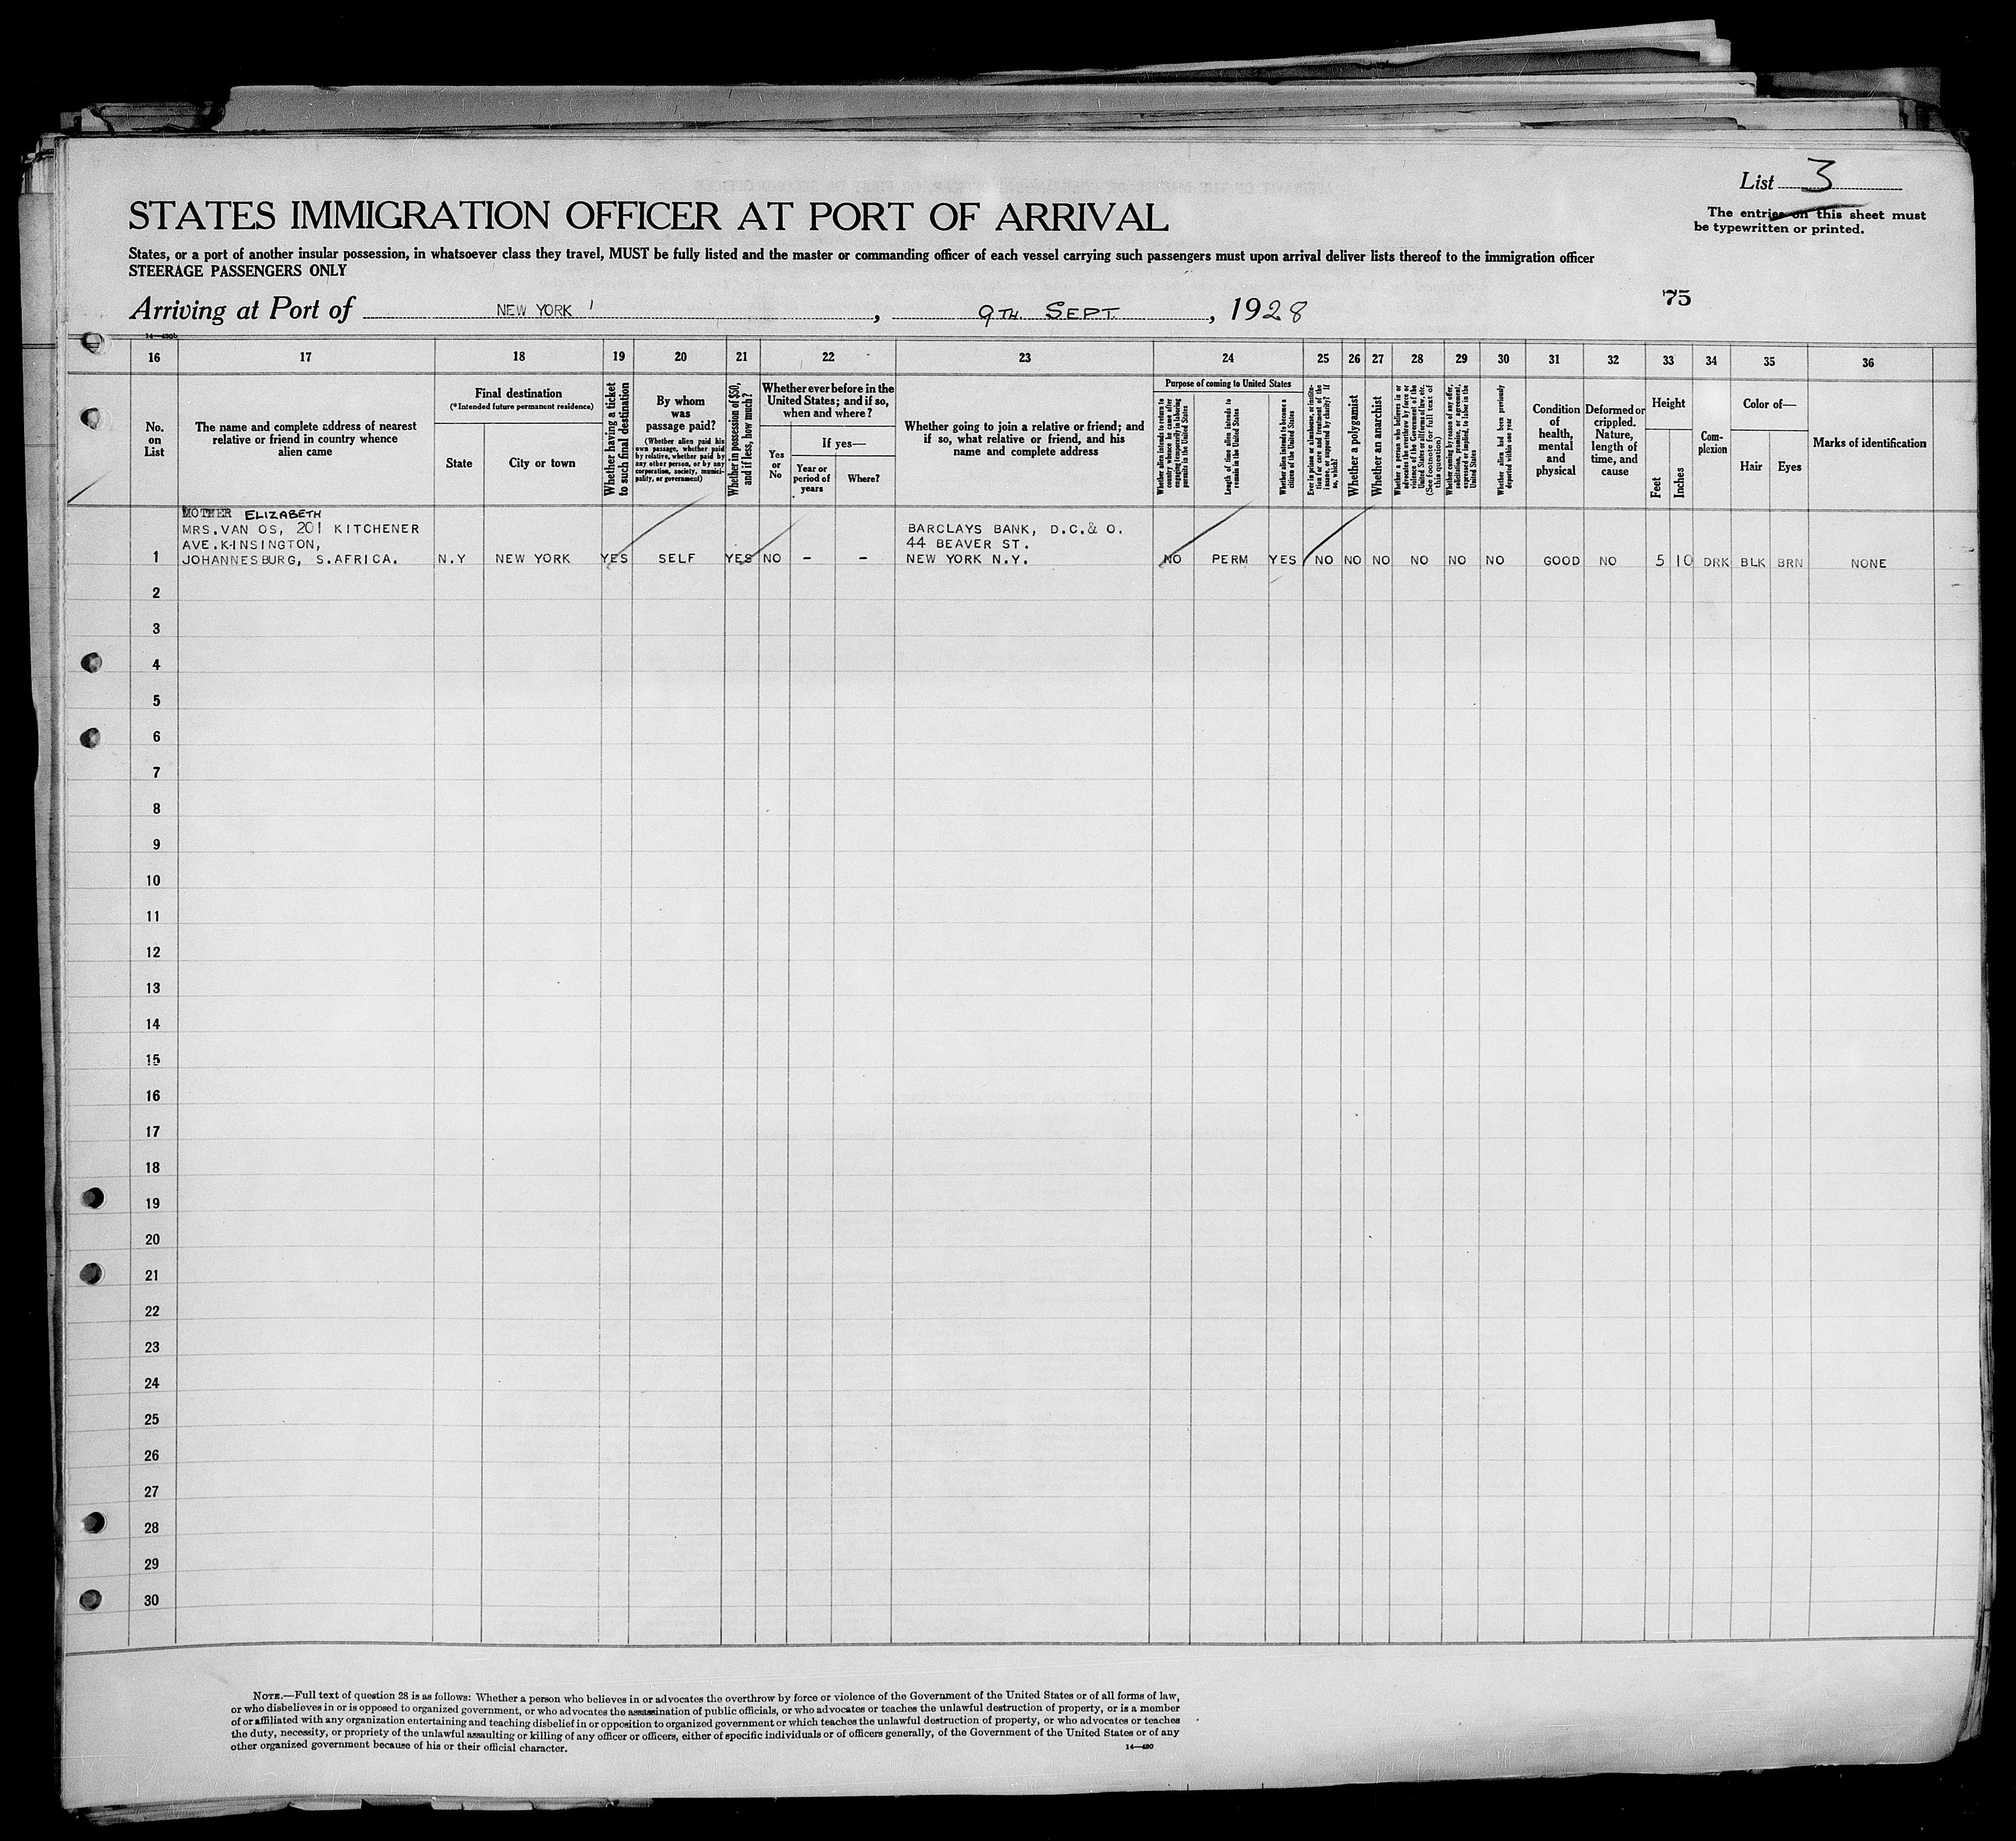 List 3
The entries on this sheet must
be typewritten or printed.
STATES IMMIGRATION OFFICER AT PORT OF ARRIVAL
States, or a port of another insular possession, in whatsoever class they travel, MUST be fully listed and the master or commanding officer of each vessel carrying such passengers must upon arrival deliver lists thereof to the immigration officer
STEERAGE PASSENGERS ONLY
Arriving at Port of NEW YORK , 9TH SEPT. , 1928
75
14—430b
16 17 18 19 20 21 22 23 24 25 26 27 28 29 30 31 32 33 34 35 36
No.
on
List
The name and complete address of nearest
relative or friend in country whence
alien came
Final destination
(*Intended future permanent residence)
State
City or town
Whether having a ticket
to such final destination
By whom
was
passage paid?
(Whether alien paid his
own passage, whether paid
by relative, whether paid by
any other person, or by any
corporation, society, munici-
pality, or government)
Whether in possession of $50,
and if less, how much?
Whether ever before in the
United States; and if so,
when and where?
Yes
or
No
If yes—
Year or
period of
years
Where?
Whether going to join a relative or friend; and
if so, what relative or friend, and his
name and complete address
Purpose of coming to United States
Whether alien intends to return to
country whence he came after
engaging temporarily in laboring
pursuits in the United States
Length of time alien intends to
remain in the United States
Whether alien intends to become a
citizen of the United States
Ever in prison or almshouse, or institu-
tion for care and treatment of the
insane, or supported by charity? If
so, which?
Whether a polygamist
Whether an anarchist
Whether a person who believes in or
advocates the overthrow by force or
violence of the Government of the
United States or all forms of law, etc.
(See footnote for full text of
this question)
Whether coming by reason of any offer,
solicitation, promise, or agreement,
expressed or implied, to labor in the
United States
Whether alien had been previously
deported within one year
Condition
of
health,
mental
and
physical
Deformed or
crippled.
Nature,
length of
time, and
cause
Height
Feet
Inches
Com-
plexion
Color of—
Hair
Eyes
Marks of identification
MOTHER ELIZABETH
MRS.VAN OS, 201 KITCHENER
AVE.KINSINGTON,
JOHANNESBURG, S.AFRICA.
BARCLAYS BANK, D.C.& O.
44 BEAVER ST.
NEW YORK N.Y.
1 N.Y NEW YORK YES SELF YES NO – – NO PERM YES NO NO NO NO NO NO GOOD NO 5 10 DRK BLK BRN NONE
2
3
4
5
6
7
8
9
10
11
12
13
14
15
16
17
18
19
20
21
22
23
24
25
26
27
28
29
30
NOTE.—Full text of question 28 is as follows: Whether a person who believes in or advocates the overthrow by force or violence of the Government of the United States or of all forms of law,
or who disbelieves in or is opposed to organized government, or who advocates the assassination of public officials, or who advocates or teaches the unlawful destruction of property, or is a member
of or affiliated with any organization entertaining and teaching disbelief in or opposition to organized government or which teaches the unlawful destruction of property, or who advocates or teaches
the duty, necessity, or propriety of the unlawful assaulting or killing of any officer or officers, either of specific individuals or of officers generally, of the Government of the United States or of any
other organized government because of his or their official character.
14—430